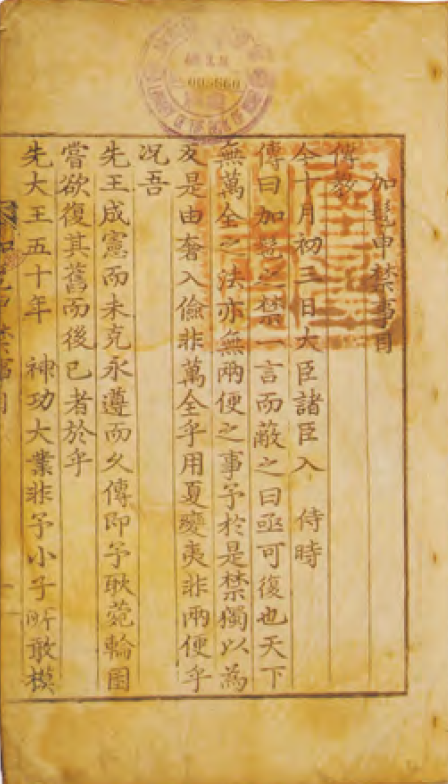 加髢申禁事目
傳教
今十月初三日大臣諸臣入 侍時
傳曰加髢之禁一言而蔽之曰亟可復也天下
無萬全之法亦無兩便之事予於是禁獨以為
反是由奢入儉非萬全乎用夏變夷非兩便乎
况吾
先王成憲而未克永遵而久傳即予耿苑輪囷
嘗欲復其舊而後已者於乎
先大王五十年 神功大業非予小子所敢模